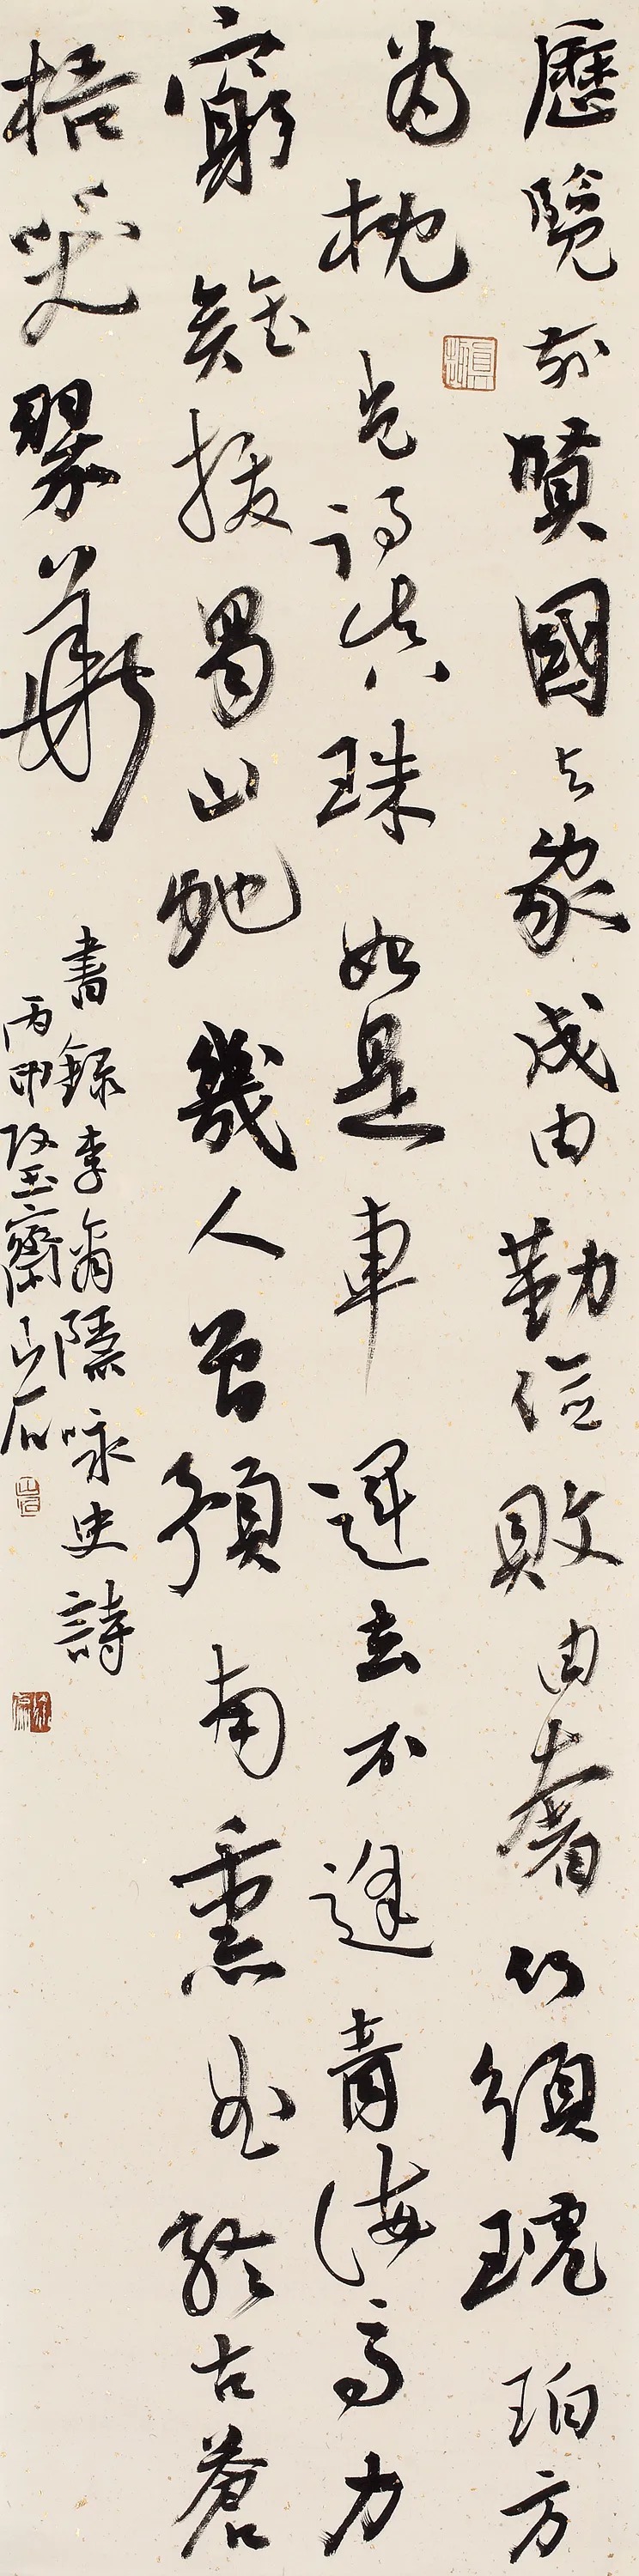 歷覽前賢國与家成由勤儉敗由奢何須琥珀方
為枕豈得真珠始是車運去不逢青海馬力
窮難拔蜀山虵幾人曾預南熏曲終古蒼
梧哭翠華
書錄李商隱咏史詩
丙申攻玉齋山石